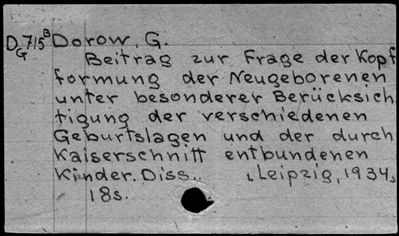 D 715B Dorow, G.
G
Beitrag zur Frage der Kopf
formung der Neugeborenen
unter besonderer Berücksich
tigung der verschiedenen
Geburtslagen und der durch
Kaiserschnitt entbundenen
Kinder. Diss.. , Leipzig, 1934,
18s.